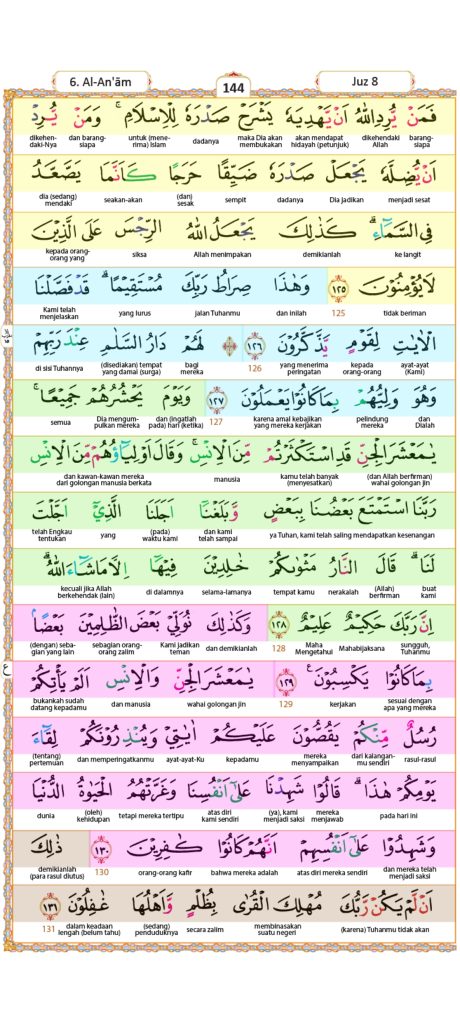 6. Al-An'ām
144
Juz 8
فَمَنْ يُّرِدِ اللّٰهُ اَنْ يَّهْدِيَهٗ يَشْرَحْ صَدْرَهٗ لِلْاِسْلَامِۚ وَمَنْ يُّرِدْ
barang-siapa dikehendaki Allah akan mendapat hidayah (petunjuk) maka Dia akan membukakan dadanya untuk (mene-rima) Islam dan barang-siapa dikehen-daki-Nya
اَنْ يُّضِلَّهٗ يَجْعَلْ صَدْرَهٗ ضَيِّقًا حَرَجًا كَاَنَّمَا يَصَّعَّدُ
menjadi sesat Dia jadikan dadanya sempit (dan) sesak seakan-akan dia (sedang) mendaki
فِى السَّمَاۤءِۗ كَذٰلِكَ يَجْعَلُ اللّٰهُ الرِّجْسَ عَلَى الَّذِيْنَ
ke langit demikianlah Allah menimpakan siksa kepada orang-orang yang
لَا يُؤْمِنُوْنَ ١٢٥ وَهٰذَا صِرَاطُ رَبِّكَ مُسْتَقِيْمًاۗ قَدْ فَصَّلْنَا
tidak beriman 125 dan inilah jalan Tuhanmu yang lurus Kami telah menjelaskan
الْاٰيٰتِ لِقَوْمٍ يَّذَّكَّرُوْنَ ١٢٦ لَهُمْ دَارُ السَّلٰمِ عِنْدَ رَبِّهِمْ
ayat-ayat (Kami) kepada orang-orang yang menerima peringatan 126 bagi mereka (disediakan) tempat yang damai (surga) di sisi Tuhannya
وَهُوَ وَلِيُّهُمْ بِمَا كَانُوْا يَعْمَلُوْنَ ١٢٧ وَيَوْمَ يَحْشُرُهُمْ جَمِيْعًاۚ
dan Dialah pelindung mereka karena amal kebajikan yang mereka kerjakan 127 dan (ingatlah pada) hari (ketika) Dia mengum-pulkan mereka semua
يٰمَعْشَرَ الْجِنِّ قَدِ اسْتَكْثَرْتُمْ مِّنَ الْاِنْسِۚ وَقَالَ اَوْلِيَاۤؤُهُمْ مِّنَ الْاِنْسِ
(dan Allah berfirman) wahai golongan jin kamu telah banyak (menyesatkan) manusia dan kawan-kawan mereka dari golongan manusia berkata
رَبَّنَا اسْتَمْتَعَ بَعْضُنَا بِبَعْضٍ وَّبَلَغْنَآ اَجَلَنَا الَّذِيْٓ اَجَّلْتَ
ya Tuhan, kami telah saling mendapatkan kesenangan dan kami telah sampai (pada) waktu kami yang telah Engkau tentukan
لَنَاۗ قَالَ النَّارُ مَثْوٰىكُمْ خٰلِدِيْنَ فِيْهَآ اِلَّا مَا شَاۤءَ اللّٰهُۗ
buat kami (Allah) berfirman nerakalah tempat kamu selama-lamanya di dalamnya kecuali jika Allah berkehendak (lain)
اِنَّ رَبَّكَ حَكِيْمٌ عَلِيْمٌ ١٢٨ وَكَذٰلِكَ نُوَلِّيْ بَعْضَ الظّٰلِمِيْنَ بَعْضًاۢ
sungguh, Tuhanmu Mahabijaksana Maha Mengetahui 128 dan demikianlah Kami jadikan teman sebagian orang-orang zalim (dengan) seba-gian yang lain
بِمَا كَانُوْا يَكْسِبُوْنَ ١٢٩ يٰمَعْشَرَ الْجِنِّ وَالْاِنْسِ اَلَمْ يَأْتِكُمْ
sesuai dengan apa yang mereka kerjakan 129 wahai golongan jin dan manusia bukankah sudah datang kepadamu
رُسُلٌ مِّنْكُمْ يَقُصُّوْنَ عَلَيْكُمْ اٰيٰتِيْ وَيُنْذِرُوْنَكُمْ لِقَاۤءَ
rasul-rasul dari kalangan-mu sendiri mereka menyampaikan kepadamu ayat-ayat-Ku dan memperingatkanmu (tentang) pertemuan
يَوْمِكُمْ هٰذَاۗ قَالُوْا شَهِدْنَا عَلٰٓى اَنْفُسِنَا وَغَرَّتْهُمُ الْحَيٰوةُ الدُّنْيَا
pada hari ini mereka menjawab (ya), kami menjadi saksi atas diri kami sendiri tetapi mereka tertipu (oleh) kehidupan dunia
وَشَهِدُوْا عَلٰٓى اَنْفُسِهِمْ اَنَّهُمْ كَانُوْا كٰفِرِيْنَ ١٣٠ ذٰلِكَ
dan mereka telah menjadi saksi atas diri mereka sendiri bahwa mereka adalah orang-orang kafir 130 demikianlah (para rasul diutus)
اَنْ لَّمْ يَكُنْ رَّبُّكَ مُهْلِكَ الْقُرٰى بِظُلْمٍ وَّاَهْلُهَا غٰفِلُوْنَ ١٣١
(karena) Tuhanmu tidak akan membinasakan suatu negeri secara zalim (sedang) penduduknya dalam keadaan lengah (belum tahu) 131
ع